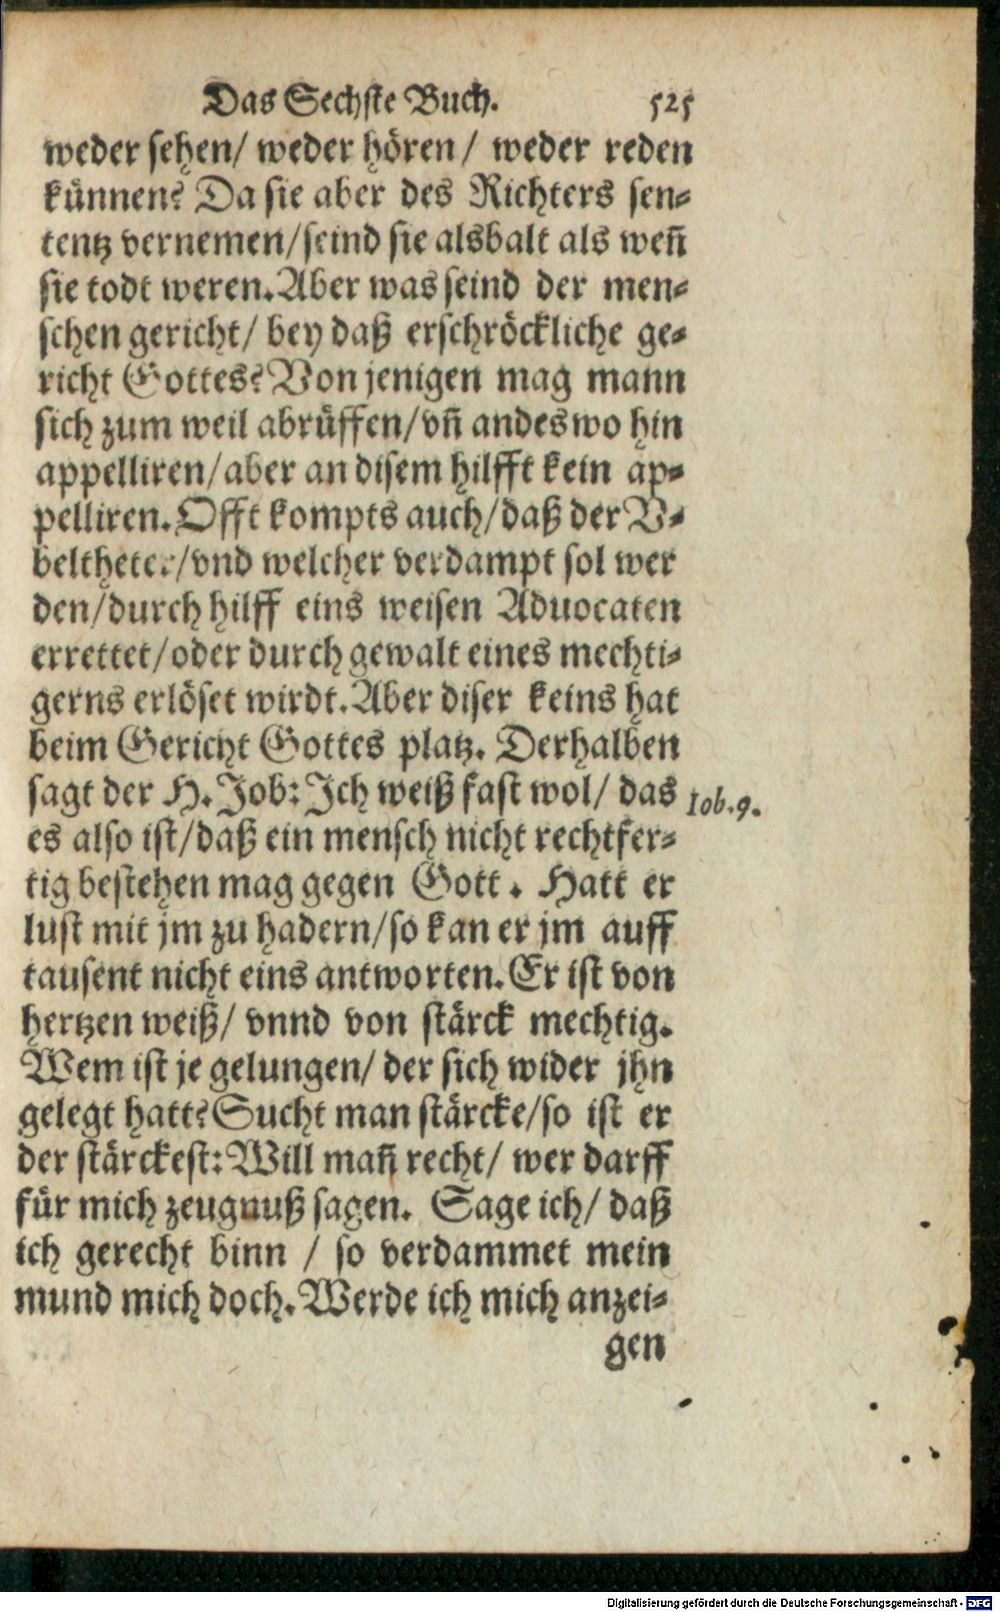 Das Sechste Buch. 525
weder sehen/ weder hören/ weder reden
künnen? Da sie aber des Richters sen-
tentz vernemen/seind sie alsbalt als weñ
sie todt weren. Aber was seind der men-
schen gericht/ bey daß erschröckliche ge-
richt Gottes? Von jenigen mag mann
sich zum weil abrüffen/vñ andeswo hin
appelliren/aber an disem hilfft kein ap-
pelliren. Offt kompts auch/daß der V-
beltheter/vnd welcher verdampt sol wer
den/durch hilff eins weisen Aduocaten
errettet/oder durch gewalt eines mechti-
gerns erlöset wirdt. Aber diser keins hat
beim Gericht Gottes platz. Derhalben
sagt der H. Job: Ich weiß fast wol/ das Iob. 9.
es also ist/daß ein mensch nicht rechtfer-
tig bestehen mag gegen Gott. Hatt er
lust mit jm zu hadern/so kan er jm auff
tausent nicht eins antworten. Er ist von
hertzen weiß/ vnnd von stärck mechtig.
Wem ist je gelungen/ der sich wider jhn
gelegt hatt? Sucht man stärcke/so ist er
der stärckest: Will mañ recht/ wer darff
für mich zeugnuß sagen. Sage ich/ daß
ich gerecht binn / so verdammet mein
mund mich doch. Werde ich mich anzei-
gen
Digitalisierung gefördert durch die Deutsche Forschungsgemeinschaft - DFG